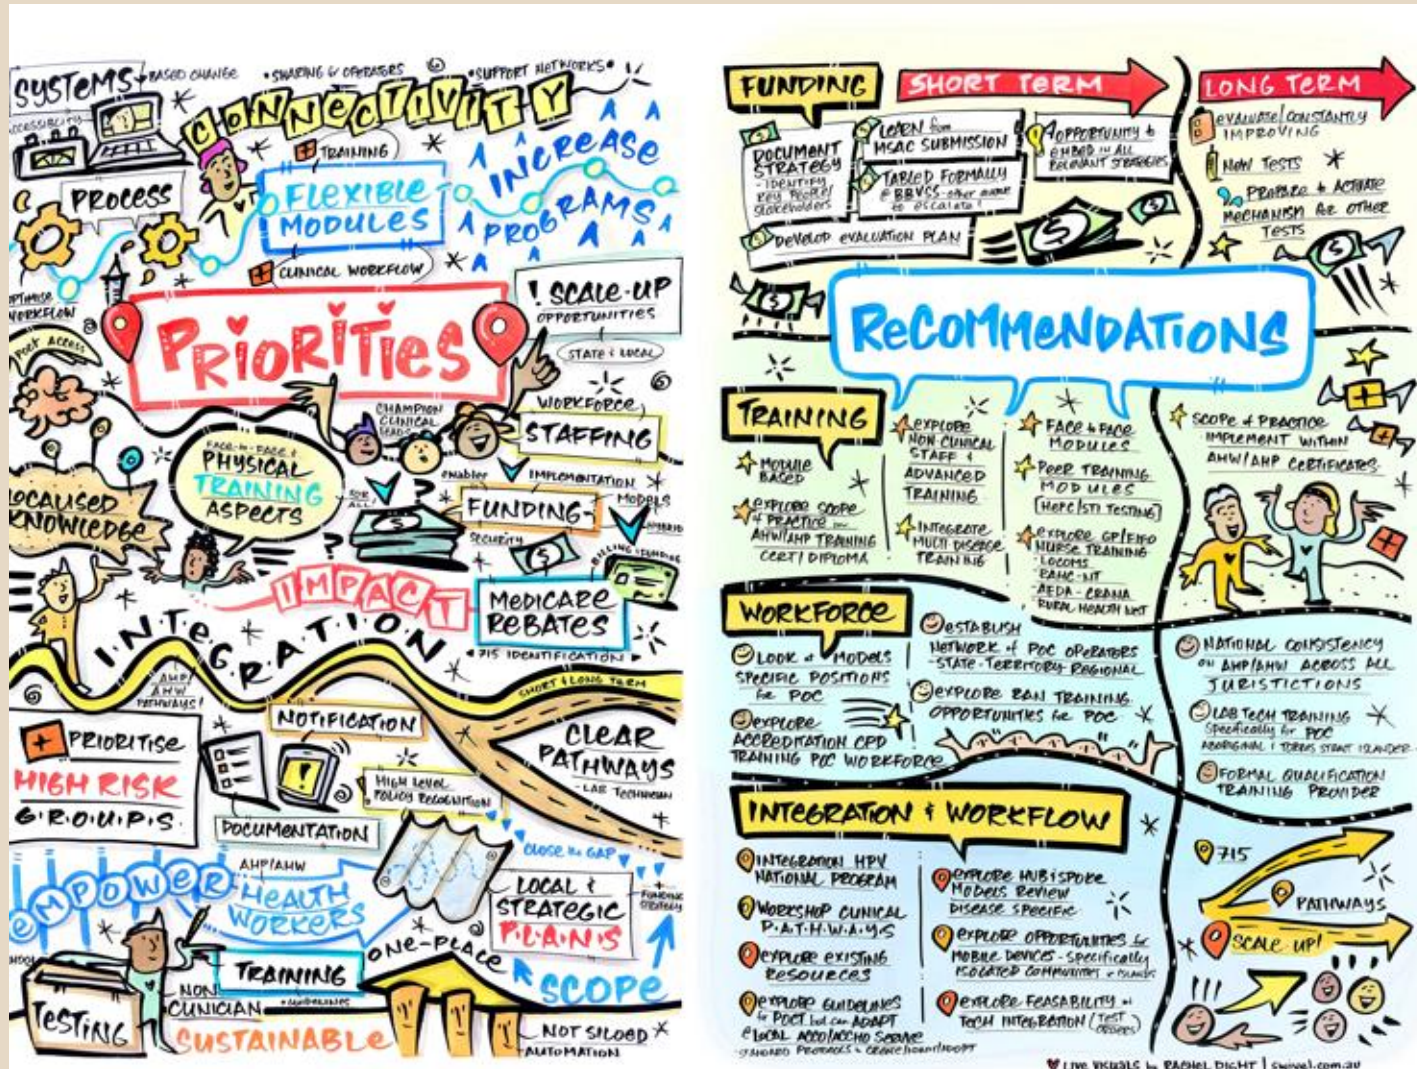 SYSTEMS
BASED CHANGE
• SHARING & OPERATORS
• SUPPORT NETWORKS •
ACCESSIBILITY
CONNECTIVITY
TRAINING
INCREASE
PROGRAMS
PROCESS
FLEXIBLE
MODULES
CLINICAL WORKFLOW
OPTIMISE
WORKFLOW
! SCALE-UP
OPPORTUNITIES
STATE & LOCAL
PRIORITIES
POCT ACCESS
CHAMPION
CLINICAL
LEADS
WORKFORCE
STAFFING
FACE-to-FACE &
PHYSICAL
TRAINING
ASPECTS
LOCALISED
KNOWLEDGE
FOR
ALL!
enables
IMPLEMENTATION
MODELS
HYBRID
FUNDING
SECURITY
BILLING
IMPACT
MEDICARE
REBATES
• 715 IDENTIFICATION •
INTEGRATION
AHP/
AHW
PATHWAYS!
SHORT & LONG TERM
PRIORITISE
HIGH RISK
G·R·O·U·P·S
NOTIFICATION
DOCUMENTATION
HIGH LEVEL
POLICY RECOGNITION
CLEAR
PATHWAYS
- LAB TECHNICIAN
CLOSE the GAP
EMPOWER
AHP/AHW
HEALTH
WORKERS
LOCAL &
STRATEGIC
P·L·A·N·S
+
FUNDING
STRATEGY
TRAINING
• GUIDELINES
ONE-PLACE
SCOPE
NON
CLINICIAN
TESTING
SUSTAINABLE
NOT SILOED
AUTOMATION
FUNDING
SHORT TERM
LONG TERM
DOCUMENT
STRATEGY
- IDENTIFY
KEY PEOPLE/
STAKEHOLDERS
LEARN from
MSAC SUBMISSION
TABLED FORMALLY
@ BBVSS - other avenue
to escalate!
OPPORTUNITY to
EMBED IN ALL
RELEVANT STRATEGIES
DEVELOP EVALUATION PLAN
EVALUATE/CONSTANTLY
IMPROVING
NEW TESTS
PREPARE to ACTIVATE
MECHANISM for OTHER
TESTS
RECOMMENDATIONS
TRAINING
MODULE
BASED
EXPLORE SCOPE
of PRACTICE in
AHW/AHP TRAINING
CERT/DIPLOMA
EXPLORE
NON CLINICAL
STAFF &
ADVANCED
TRAINING
INTEGRATE
MULTI DISEASE
TRAINING
FACE to FACE
MODULES
PEER TRAINING
MODULES
[HEPC/STI TESTING]
EXPLORE GP/FIFO
NURSE TRAINING
- LOCUMS
- RAHC-NT
- AEDA - CRANA
RURAL HEALTH
SCOPE of PRACTICE
IMPLEMENT WITHIN
AHW/AHP CERTIFICATES
WORKFORCE
LOOK at MODELS
SPECIFIC POSITIONS
for POC
EXPLORE
ACCREDITATION CPD
TRAINING POC WORKFORCE
ESTABLISH
NETWORK of POC OPERATORS
- STATE - TERRITORY REGIONAL
EXPLORE RAN TRAINING
OPPORTUNITIES for POC
NATIONAL CONSISTENCY
on AHP/AHW ACROSS ALL
JURISTICTIONS
LAB TECH TRAINING
Specifically for POC
ABORIGINAL & TORRES STRAIT ISLANDER
FORMAL QUALIFICATION
TRAINING PROVIDER
INTEGRATION & WORKFLOW
INTEGRATION HPV
NATIONAL PROGRAM
WORKSHOP CLINICAL
P·A·T·H·W·A·Y·S
EXPLORE EXISTING
RESOURCES
EXPLORE GUIDELINES
for POCT but can ADAPT
@ LOCAL ACCO/ACCHO SERVICE
STANDARD PROTOCOLS
EXPLORE HUB & SPOKE
MODELS REVIEW
DISEASE SPECIFIC
EXPLORE OPPORTUNITIES for
MOBILE DEVICES - SPECIFICALLY
ISOLATED COMMUNITIES & ISLANDS
EXPLORE FEASABILITY of
TECH INTEGRATION (TEST
ORDERS)
715
PATHWAYS
SCALE UP!
LIVE VISUALS by RACHEL DIGHT | swivel.com.au